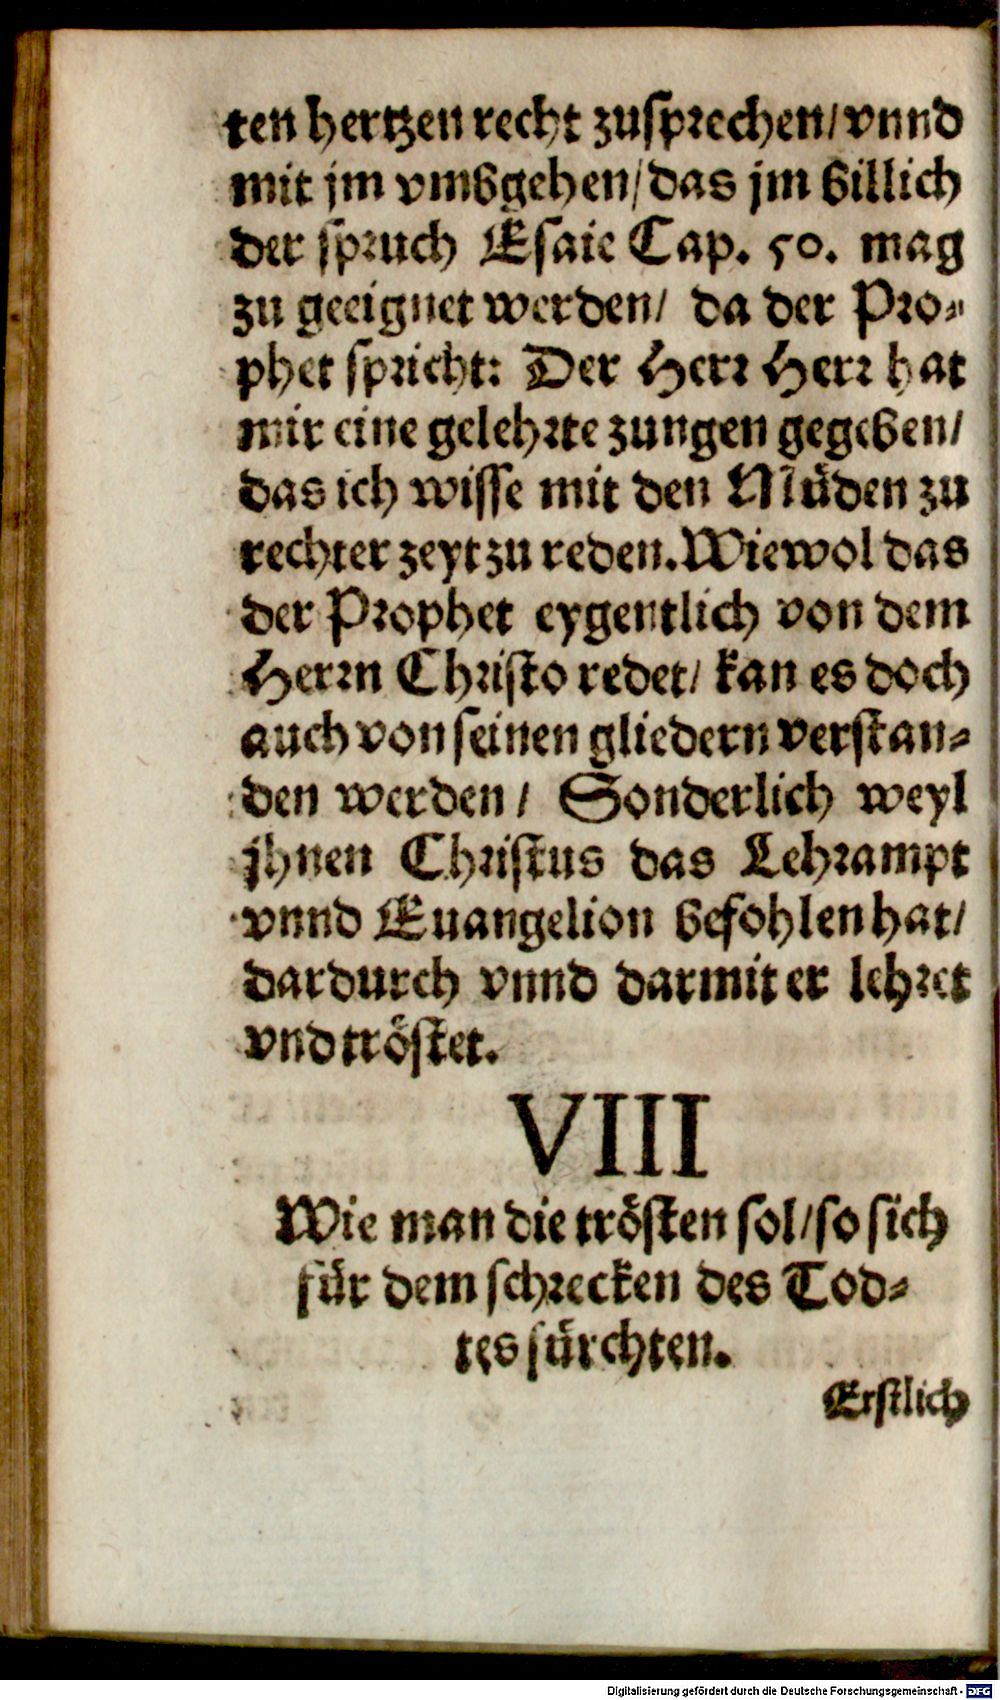 ten hertzen recht zusprechen/ vnnd
mit jm vmbgehen/ das jm billich
der spruch Esaie Cap. 50. mag
zu geeignet werden/ da der Pro-
phet spricht: Der Herr Herr hat
mir eine gelehrte zungen gegeben/
das ich wisse mit den Müden zu
rechter zeyt zu reden. Wiewol das
der Prophet eygentlich von dem
Herrn Christo redet/ kan es doch
auch von seinen gliedern verstan-
den werden/ Sonderlich weyl
jhnen Christus das Lehrampt
vnnd Euangelion befohlen hat/
dardurch vnnd darmit er lehret
vnd tröstet.
VIII
Wie man die trösten sol/ so sich
für dem schrecken des Tod-
tes fürchten.
Erstlich
Digitalisierung gefördert durch die Deutsche Forschungsgemeinschaft - DFG